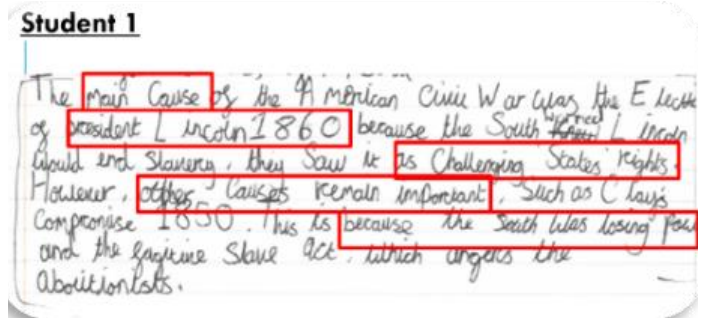 Student 1
The main Cause of the American Civil War was the Electi
of president Lincoln 1860 because the South worried Lincoln
would end Slavery, they Saw it as Challenging States rights.
However, other Causes remain important. Such as Clay's
Compromise 1850. This is because the South was losing pow
and the fugitive Slave act. which angers the
abolitionists.